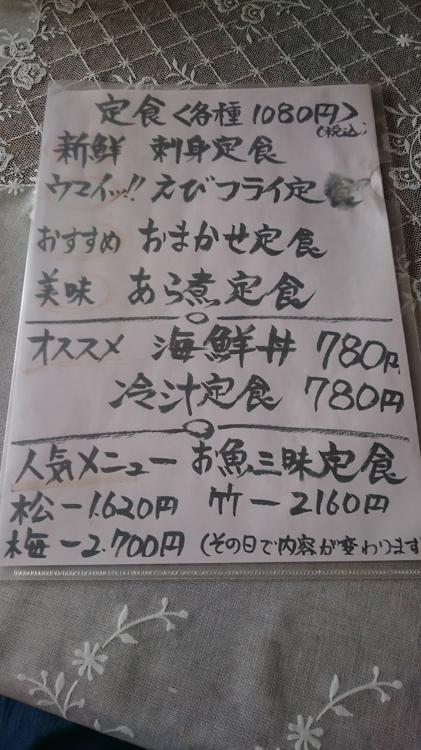 定食<各種1080円>
(税込)
新鮮 刺身定食
ウマイッ!! えびフライ定食
おすすめ おまかせ定食
美味 あら煮定食
オススメ 海鮮丼 780円
冷汁定食 780円
人気メニュー お魚三昧定食
松ー1.620円 竹ー2160円
梅ー2.700円 (その日で内容が変わります